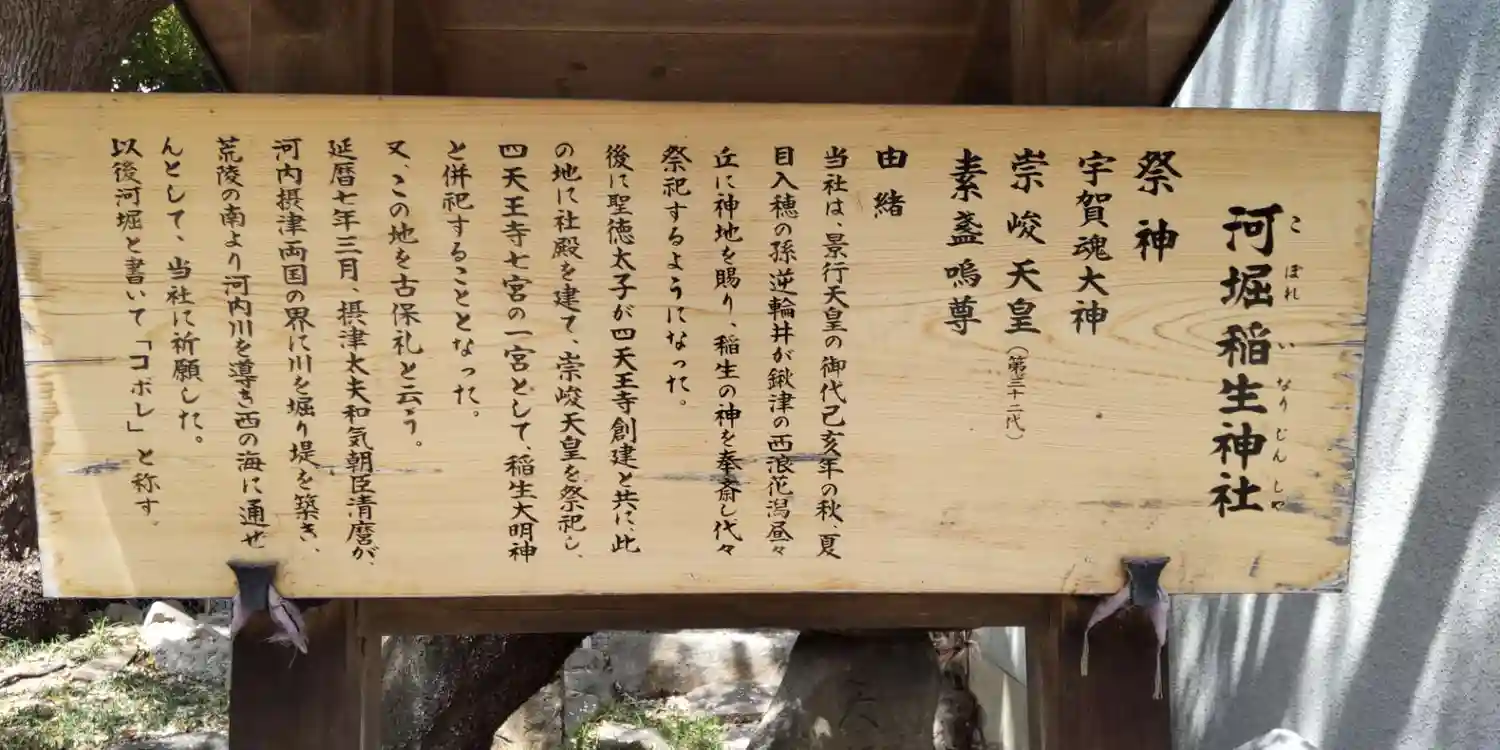 河堀稲生神社
こぼれいなりじんしや
祭神
宇賀魂大神
崇峻天皇（第三十二代）
素盞嗚尊
由緒
当社は、景行天皇の御代己亥年の秋、夏
目入穂の孫逆輪井が鍬津の西浪花潟昼々
丘に神地を賜り、稲生の神を奉斎し代々
祭祀するようになった。
後に聖徳太子が四天王寺創建と共に、此
の地に社殿を建て、崇峻天皇を祭祀し、
四天王寺七宮の一宮として、稲生大明神
と併祀することとなった。
又、この地を古保礼と云う。
延暦七年三月、摂津太夫和気朝臣清麿が、
河内摂津両国の界に川を堀り堤を築き、
荒陵の南より河内川を導き西の海に通せ
んとして、当社に祈願した。
以後河堀と書いて「コボレ」と称す。